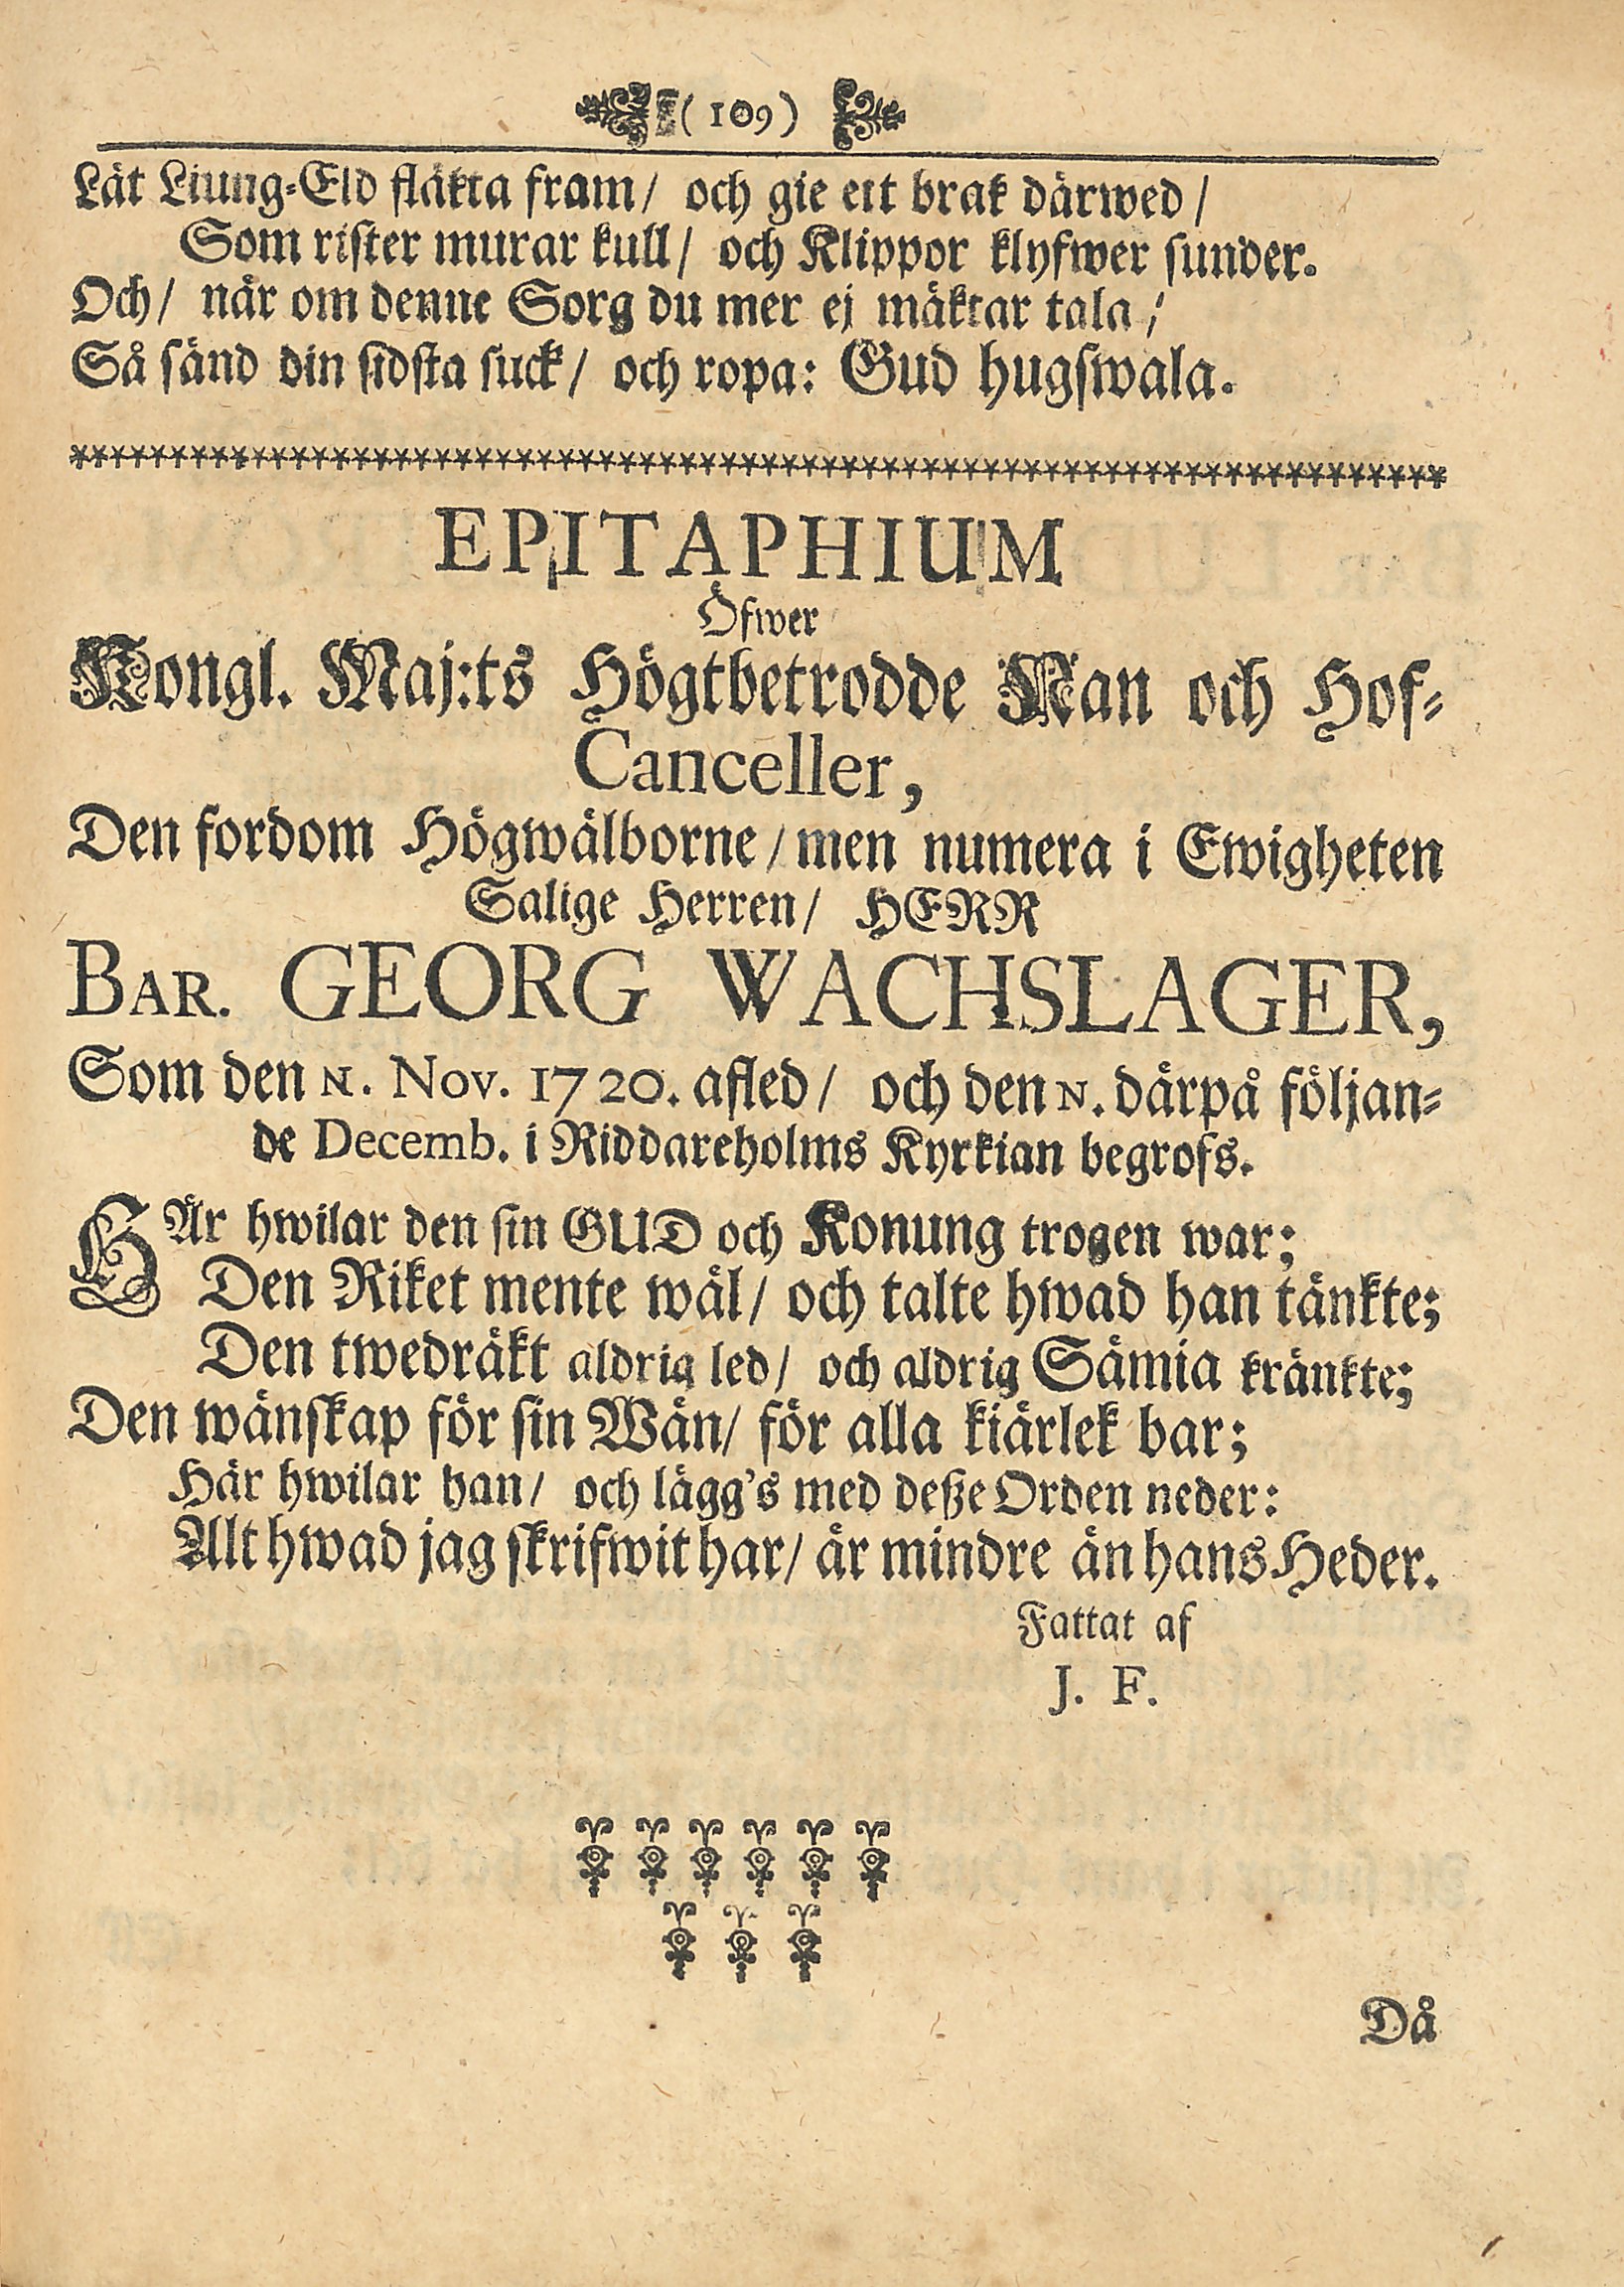 (109)
Låt Liung-Eld fläkta fram/ och gie ett brak därwed/
Som rister murar kull/ och Klippor klyfwer sunder.
Och/ när om denne Sorg du mer ej mäktar tala/
Så sänd din sidsta suck/ och ropa: Gud hugswala.
EPITAPHIUM
Öfwer
Kongl. Maj:ts Högtbetrodde Man och Hof-
Canceller,
Den fordom Högwälborne/ men numera i Ewigheten
Salige Herren/ HERR
BAR. GEORG WACHSLAGER,
Som den N. Nov. 1720. afled/ och den N. därpå följan-
de Decemb. i Riddareholms Kyrkian begrofs.
HÄr hwilar den sin GUD och Konung trogen war;
Den Riket mente wäl/ och talte hwad han tänkte;
Den twedräkt aldrig led/ och aldrig Sämia kränkte;
Den wänskap för sin Wän/ för alla kiärlek bar;
Här hwilar han/ och lägg's med deße Orden neder:
Alt hwad jag skrifwit har/ är mindre än hans Heder.
Fattat af
J. F.
Då